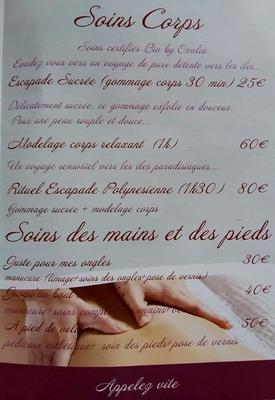 Soins Corps
Soins certifiés Bio by Oxalia
Evadez vous vers un voyage de pure détente vers les îles...
Escapade Sucrée (gommage corps 30 min) 25€
Délicatement sucrée, ce gommage exfolie en douceur.
Pour une peau souple et douce...
Modelage corps relaxant (1h) 60€
Un voyage sensoriel vers les îles paradisiaques....
Rituel Escapade Polynesienne (1h30) 80€
Gommage sucrée + modelage corps
Soins des mains et des pieds
Juste pour mes ongles 30€
manucure (limage+soins des ongles+pose de vernis)
Jusqu'au bout 40€
manucure+soins vernis
A pied de velo 50€
pédicure esthétique+ soin des pieds+pose de vernis
Appelez vite